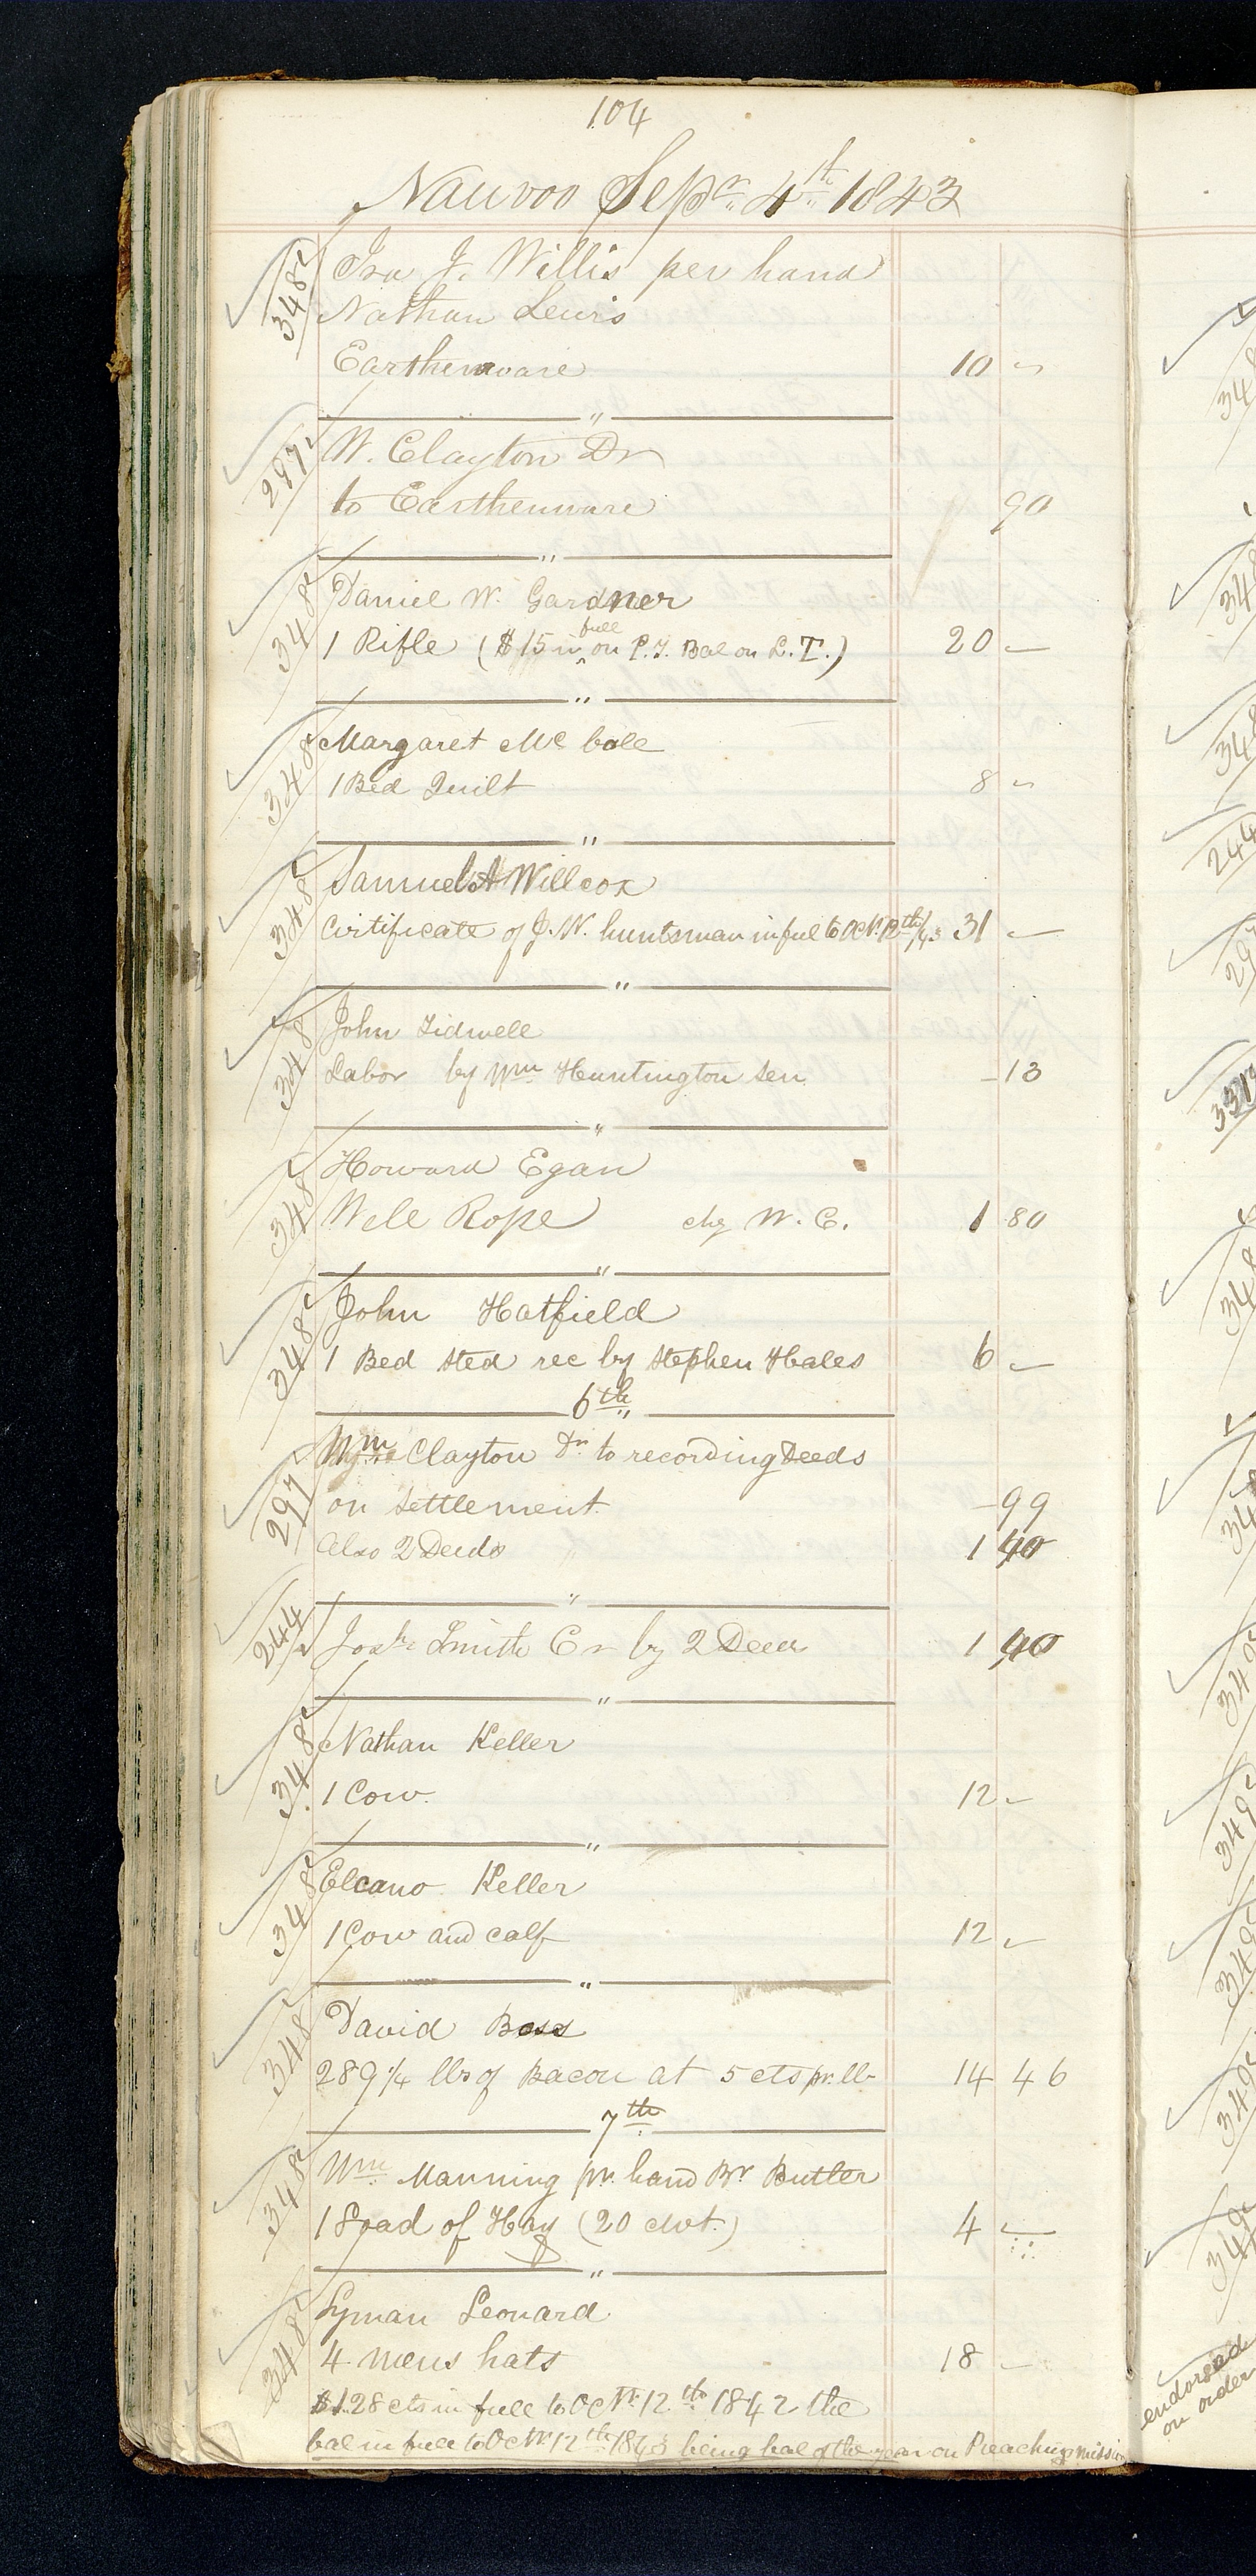 104
Nauvoo Sepr. 4th 1843
348 Ira J. Willis per hand
Nathan Lewis
Earthenware 10 -
"
297 W. Clayton Dr
to Earthenware 90
"
348 Daniel W. Gardner
1 Rifle ($15 in full on P.T. Bal on L.T.) 20 -
"
348 Margaret Mc bole
1 Bed Quilt 8 -
"
348 Samuel A Willcox
Certificate of J. W. huntsman in ful to Oct. 12th/43 31 -
"
348 John Tidwell
Labor by Wm Huntington Sen - 13
"
348 Howard Egan
Well Rope chg W. C. 1 80
"
348 John Hatfield
1 Bed sted rec by Stephen Hales 6 -
6th "
297 Wm Clayton Dr to recording Deeds
on Settlement - 99
Also 2 Deeds 1 40
"
244 Josh Smith Cr by 2 Deed 1 40
"
348 Nathan Keller
1 Cow. 12 -
"
348 Elcano Keller
1 Cow and calf 12 -
"
348 David Boss
289 1/4 lbs of Bacon at 5 cts pr. lb 14 46
7th
348 Wm Manning pr. hand Br Butler
1 Load of Hay (20 cwt.) 4 -
"
348 Lyman Leonard
4 mens hats 18 -
$1.28 cts in full to Octr. 12th 1842 the
bal in full to Octr 12th 1843 being bal of the year on Preaching mission
348
348
348
244
297
331
348
348
349
349
349
349
349
endorsed
on order